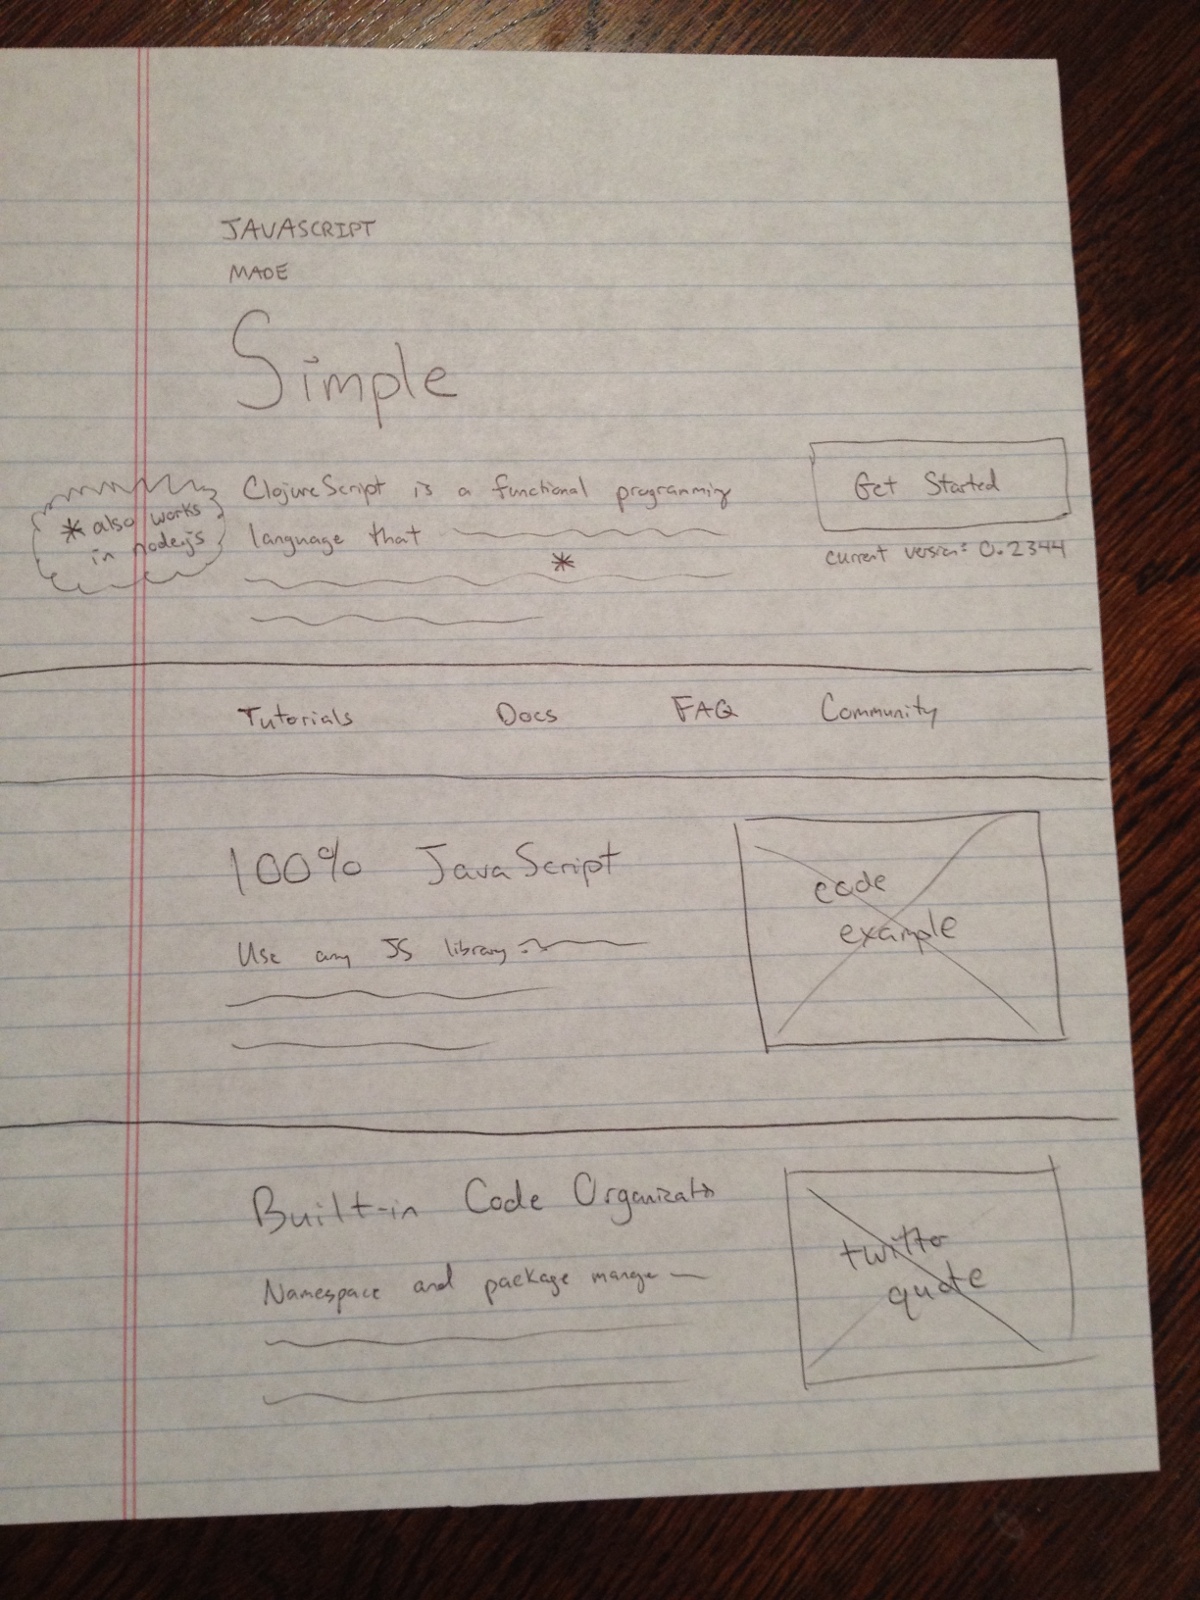 JAVASCRIPT
MADE
Simple
* also works
in nodejs
ClojureScript is a functional programming
language that
*
Get Started
current version: 0.2344
Tutorials Docs FAQ Community
100% JavaScript
Use any JS library
code
example
Built-in Code Organizat
Namespace and package
quote